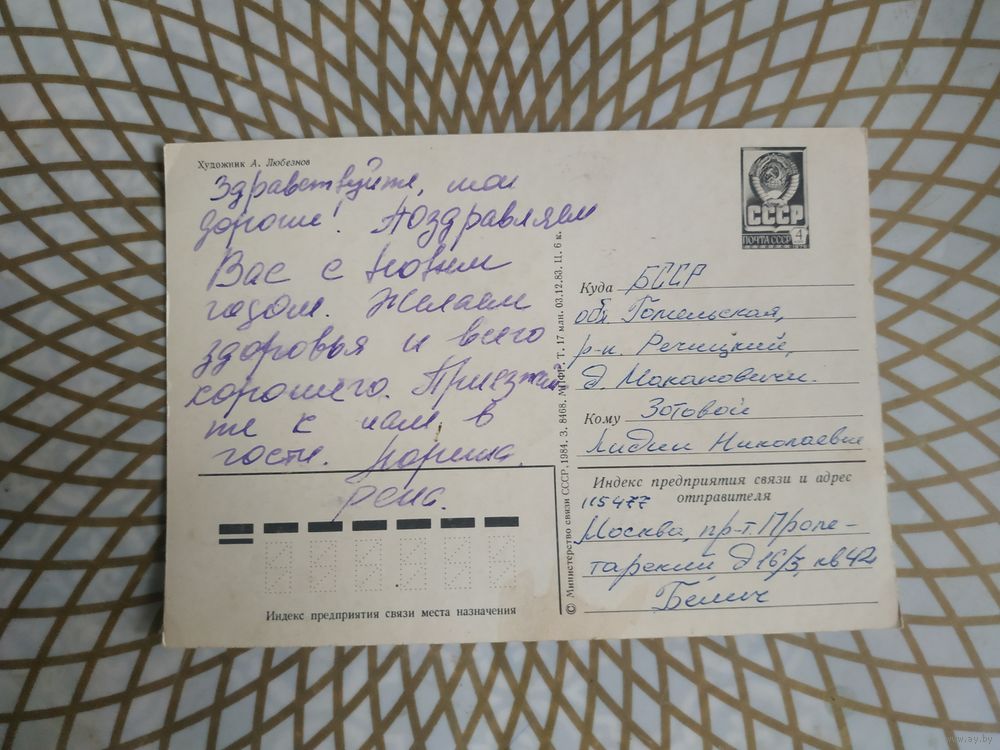 Художник А. Любезнов
Здравствуйте, мои
дорогие! Поздравляем
Вас с Новым
годом. Желаем
здоровья и всего
хорошего. Приезжай
те к нам в
гости. Марина.
Рена.
Индекс предприятия связи места назначения
© Министерство связи СССР, 1984. З. 8468. МПФГ. Т. 17 млн. 03.12.83. Ц. 6 к.
СССР
ПОЧТА СССР 4
Куда БССР
обл Гомельская,
р-н. Речицкий,
д. Макановичи.
Кому Зотовой
Лидии Николаевне
Индекс предприятия связи и адрес
отправителя
115477
Москва, пр-т. Проле-
тарский д 16/5, кв 42
Белич
www.ay.by